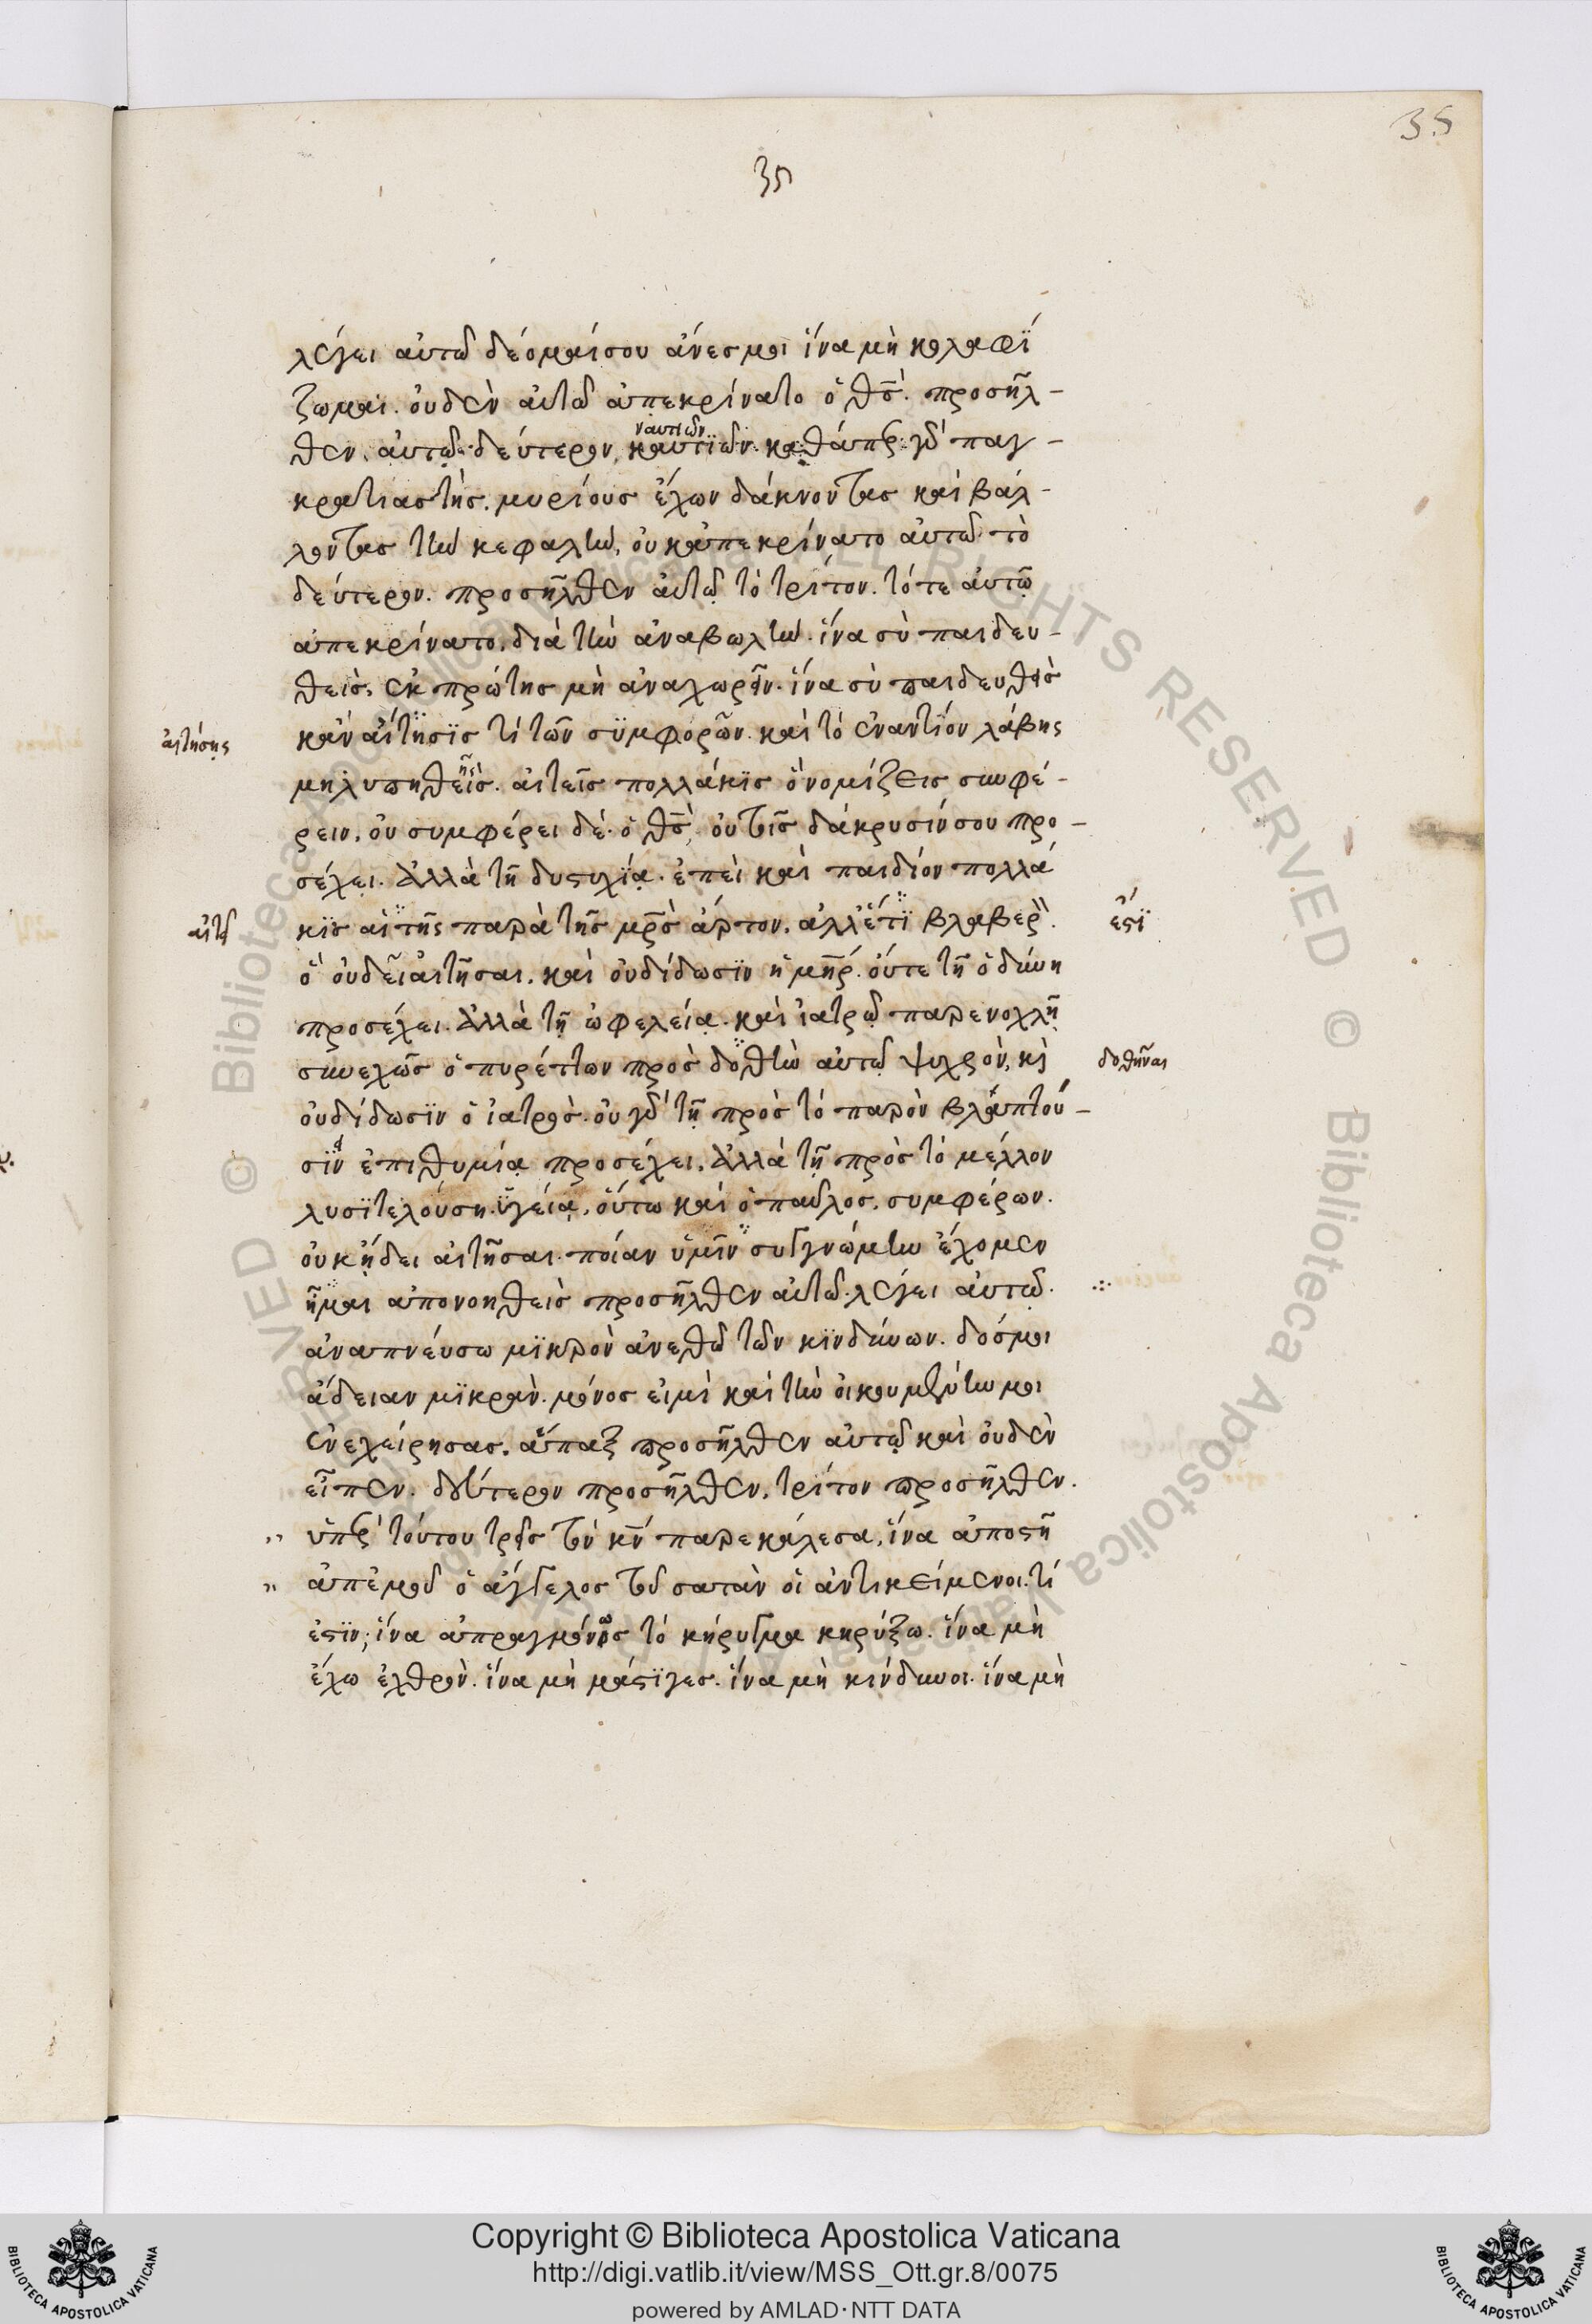 35
35
λέγει αὐτῶ δέομαί σου ἄνες μοι ἵνα μὴ κολαφί
ζωμαι. οὐδὲν αὐτῶ ἀπεκρίνατο ὁ θς̅. προσῆλ-
θεν αὐτῷ δεύτερον, καυτϊῶν καθάπερ γὰρ παγ-
ναυτιῶν
κρατιαστὴς. μυρίους ἔχων δάκνοντας καὶ βάλ-
λοντας τὴν κεφαλὴν, οὐκ ἀπεκρίνατο αὐτῶ τὸ
δεύτερον. προσῆλθεν αὐτῷ τὸ τρίτον. τότε αὐτῷ
ἀπεκρίνατο. διὰ τὴν ἀναβολὴν. ἵνα σὺ παιδευ-
θεὶς, ἐκ πρώτης μὴ ἀναχωρῆν. ἵνα σὺ παιδευθεὶς
αἰτήσης
κἂν αἴτησϊς τί τῶν σϋμφορῶν. καὶ τὸ ἐναντίον λάβης
μὴ λυπηθεῖς. αἰτεῖς πολλάκϊς ὃ νομίζεις συμφέ-
ρειν, οὐ συμφέρει δέ. ὁ θς̅, οὐ τοῖς δάκρυσίν σου προ-
σέχει. ἀλλὰ τῆ δυστυχΐᾳ. ἐπεὶ καὶ παιδίον πολλά
αἰτεῖ
κϊς αἰτῆς παρὰ τῆς μρς̅ ἄρτον. ἀλλ' ἔτϊ βλαβερὸν.
ἐστϊ
ὃ οὐ δεῖ αἰτῆσαι. καὶ οὐ δίδωσϊν ἡ μηρ̅. οὔτε τῆ ὀδύνη
προσέχει. ἀλλὰ τῇ ὠφελείᾳ. καὶ ἰατρῷ παρενοχλῇ
συνεχῶς ὁ πυρέττων πρὸς δοθὴν αὐτῷ ψυχρὸν, κὶ
δοθῆναι
οὐ δίδωσϊν ὁ ἰατρὸς. οὐ γὰρ τῇ πρὸς τὸ παρὸν βλάπτού-
σϊν ἐπιθυμίᾳ προσέχει. ἀλλὰ τῇ πρὸς τὸ μέλλον
λυσϊτελούση. ὑγείᾳ. οὕτω καὶ ὁ παῦλος. συμφέρων.
οὐκ ᾔδει αἰτῆσαι. ποίαν ὑμῖν συγγνώμην ἔχομεν
ἦμαι ἀπονοηθεὶς προσῆλθεν αὐτῶ. λέγει αὐτῷ.
ἀναπνεύσω μϊκρὸν ἀνεθῶ τῶν κϊνδύνων. δός μοι
ἄδειαν μϊκρὰν. μόνος εἰμὶ καὶ τὴν οἰκουμένην μοι
ἐνεχείρησας. ἅπαξ προσῆλθεν αὐτῷ καὶ οὐδὲν
εἶπεν. δεύτερον προσῆλθεν. τρίτον προσῆλθεν.
ὑπὲρ τούτου τρὶς τὸν κν̅ παρεκάλεσα, ἵνα ἀποστῆ
ἀπ' ἐμοῦ ὁ ἄγγελος τοῦ σατὰν οἱ ἀντικείμενοι. τί
ἐστϊν; ἵνα ἀπραγμόνως τὸ κήρυγμα κηρύξω. ἵνα μὴ
ἔχω ἐχθρὸν. ἵνα μὴ μάστϊγες. ἵνα μὴ κίνδυνοι. ἵνα μὴ
Copyright © Biblioteca Apostolica Vaticana
http://digi.vatlib.it/view/MSS_Ott.gr.8/0075
powered by AMLAD·NTT DATA
BIBLIOTECA APOSTOLICA VATICANA
BIBLIOTECA APOSTOLICA VATICANA